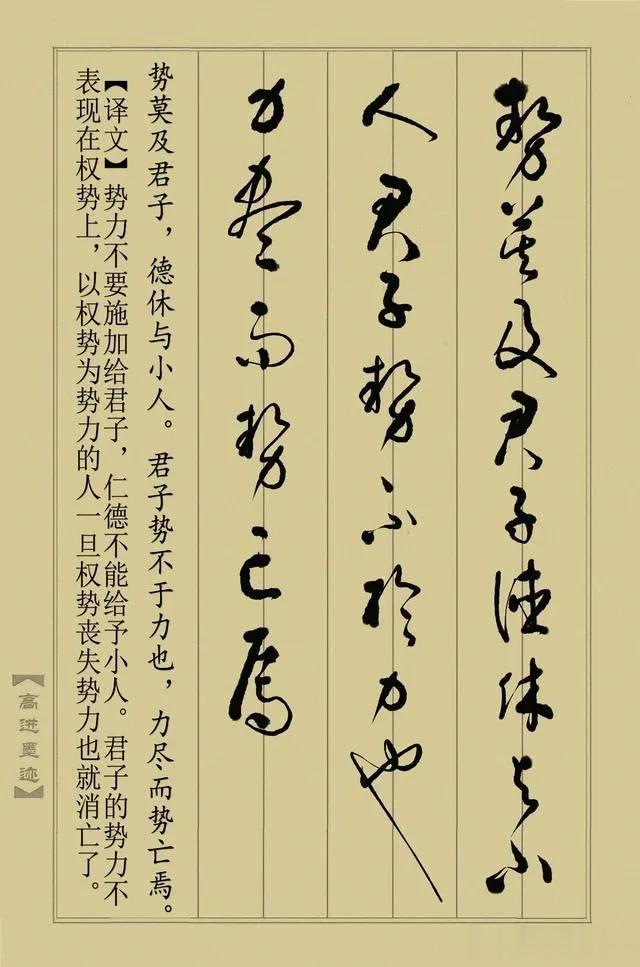 勢莫及君子德休与小
人君子勢不於力也
力尽而勢亡焉
势莫及君子，德休与小人。君子势不于力也，力尽而势亡焉。
【译文】势力不要施加给君子，仁德不能给予小人。君子的势力不
表现在权势上，以权势为势力的人一旦权势丧失势力也就消亡了。
【高进墨迹】